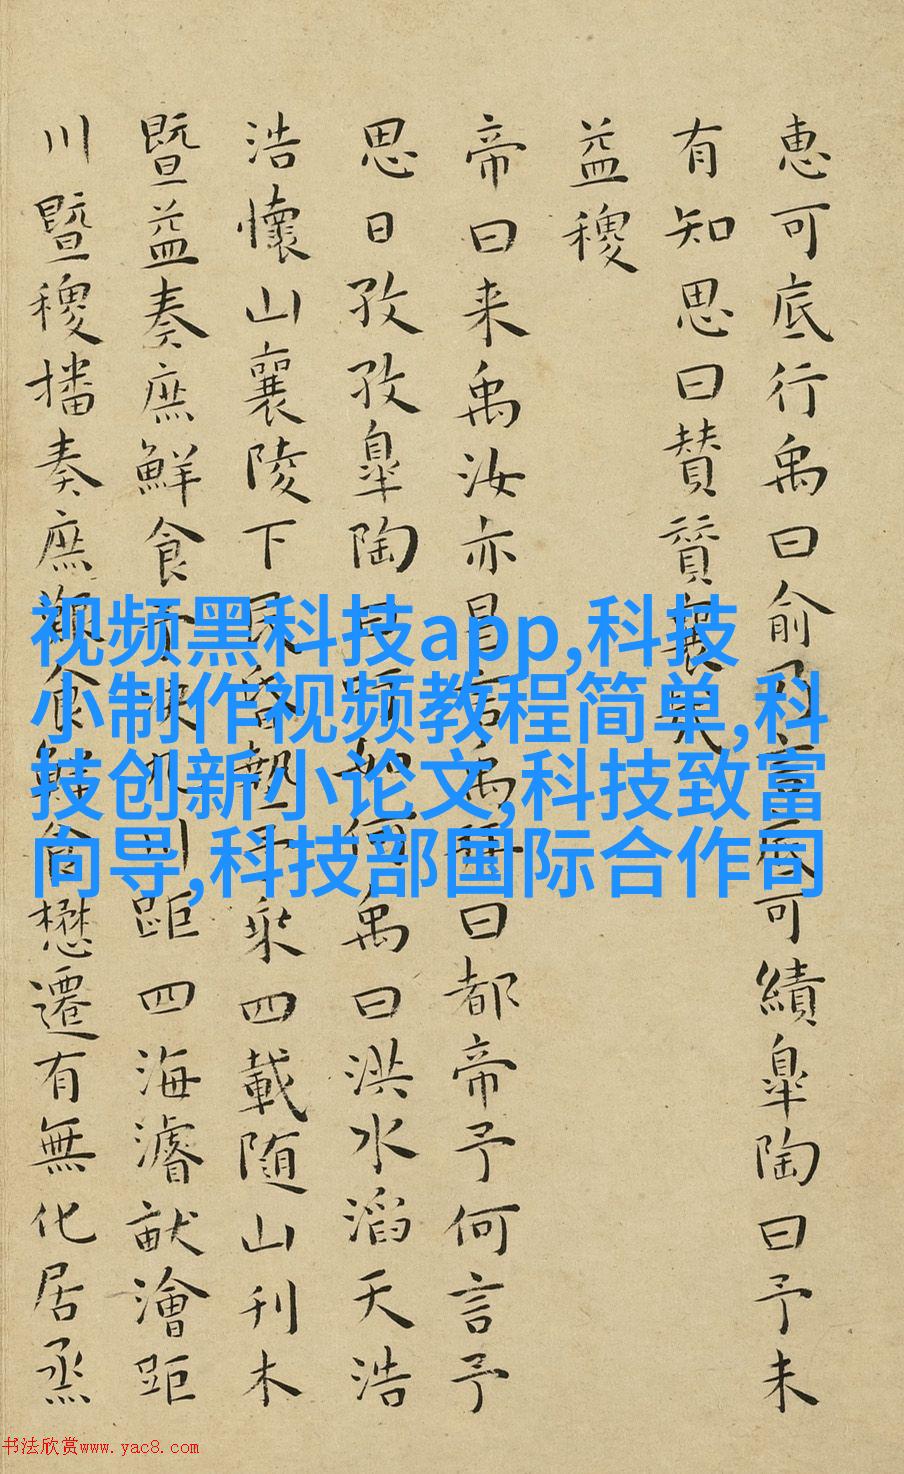 惠可底行禹曰俞乃言底可績皐陶曰予未
有知思曰賛賛襄
益稷
帝曰来禹汝亦昌言禹拜曰都帝予何言予
思日孜孜皐陶曰吁如何禹曰洪水滔天浩
浩懷山襄陵下民昏墊予乗四載随山刊木
暨益奏庶鮮食予决九川距四海濬畎澮距
川暨稷播奏庶艱食鮮食懋遷有無化居烝
视频黑科技app,科技
小制作视频教程简单,科
技创新小论文,科技致富
向导,科技部国际合作司
书法欣赏www.yac8.com